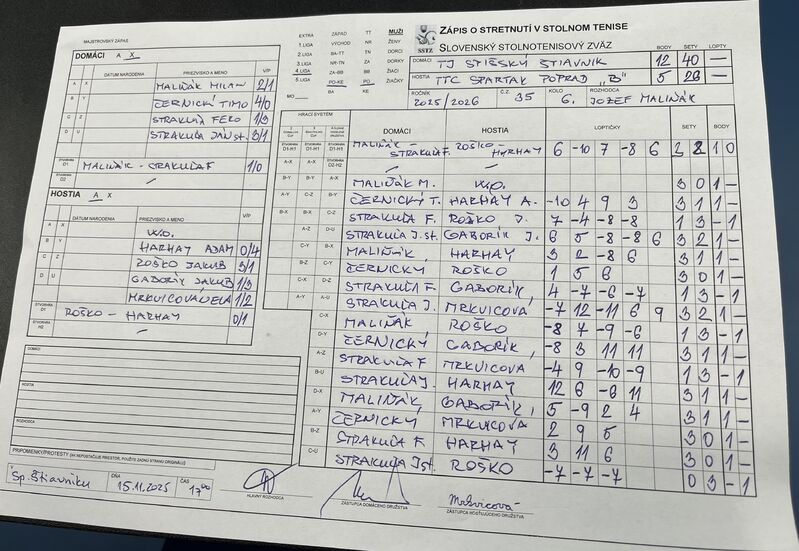 MAJSTROVSKÝ ZÁPAS
DOMÁCI A X
DÁTUM NARODENIA PRIEZVISKO A MENO V/P
A X MALIŇÁK MILAN 2/1
B Y ČERNICKÝ TIMO 4/0
C Z STRAKUĽA FERO 1/3
D U STRAKUĽA JÁN st. 3/1
ŠTVORHRA D1 MALIŇÁK - STRAKUĽA F 1/0
ŠTVORHRA D2 —
HOSTIA A X
DÁTUM NARODENIA PRIEZVISKO A MENO V/P
A X W.O.
B Y HARHAY ADAM 0/4
C Z ROŠKO JAKUB 3/1
D U GABORÍK JAKUB 1/3
MRKVICOVÁ NELA 1/2
ŠTVORHRA D1 ROŠKO - HARHAY 0/1
ŠTVORHRA H2 —
DOMÁCI
HOSTIA
ROZHODCA
PRIPOMIENKY/PROTESTY (AK NEPOSTAČUJE PRIESTOR, POUŽITE ZADNÚ STRANU ORIGINÁLU)
V Sp. Štiavniku DŇA 15.11.2025 ČAS 17:00
HLAVNÝ ROZHODCA
ZÁSTUPCA DOMÁCEHO DRUŽSTVA
Mrkvicová
ZÁSTUPCA HOSŤUJÚCEHO DRUŽSTVA
EXTRA ZÁPAD TT MUŽI
1.LIGA VÝCHOD NR ŽENY
2.LIGA BA-TT TN DORCI
3.LIGA NR-TN ZA DORKY
4.LIGA ZA-BB BB ŽIACI
5.LIGA PO-KE PO ŽIAČKY
MO BA KE
SSTZ
ZÁPIS O STRETNUTÍ V STOLNOM TENISE
SLOVENSKÝ STOLNOTENISOVÝ ZVÄZ
BODY SETY LOPTY
DOMÁCI TJ SPIŠSKÝ ŠTIAVNIK 12 40 —
HOSTIA TTC SPARTAK POPRAD "B" 5 23 —
ROČNÍK 2025/2026 Č.Z. 35 KOLO 6. ROZHODCA JOZEF MALIŇÁK
HRACÍ SYSTÉM DOMÁCI HOSTIA LOPTIČKY SETY BODY
ŠTVORHRA D1-H1 ŠTVORHRA D1-H1 ŠTVORHRA D1-H1 MALIŇÁK - STRAKUĽA F. ROŠKO - HARHAY 6 -10 7 -8 6 3 2 1 0
A-X ŠTVORHRA D2-H2 — —
B-Y B-Y A-X MALIŇÁK M. W.O. 3 0 1 —
A-Y C-Z B-Y ČERNICKÝ T. HARHAY A. -10 4 9 3 3 1 1 —
B-X B-X C-Z STRAKUĽA F. ROŠKO J. 7 -4 -8 -8 1 3 — 1
A-Z D-U STRAKUĽA J. st. GABORÍK J. 6 5 -8 -8 6 3 2 1 —
C-Y B-X MALIŇÁK HARHAY 3 2 -8 6 3 1 1 —
B-Z C-Y ČERNICKÝ ROŠKO 1 5 6 3 0 1 —
C-X D-Z STRAKUĽA F GABORÍK 4 -7 -6 -7 1 3 — 1
A-Y A-U STRAKUĽA J. MRKVICOVÁ -7 12 -11 6 9 3 2 1 —
C-X MALIŇÁK ROŠKO -8 7 -9 -6 1 3 — 1
D-Y ČERNICKÝ GABORÍK -8 3 11 11 3 1 1 —
A-Z STRAKUĽA F MRKVICOVÁ -4 9 -10 -9 1 3 — 1
B-U STRAKUĽA J. HARHAY 12 6 -6 11 3 1 1 —
D-X MALIŇÁK GABORÍK 5 -9 2 4 3 1 1 —
A-Y ČERNICKÝ MRKVICOVÁ 2 9 5 3 0 1 —
B-Z STRAKUĽA F. HARHAY 3 11 6 3 0 1 —
C-U STRAKUĽA J st. ROŠKO -7 -7 -7 0 3 — 1